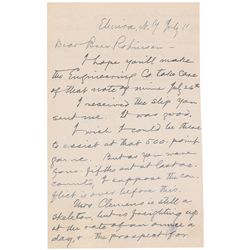 Elmira, N.Y. July 11
Dear Bro. Robinson—
I hope you'll make
the Engineering Co. take care
of that note of mine July 26th
I received the slip you
sent me. It was good.
I wish I could be there
to assist at that 500-point
game. But as you were
fifths out at last ac-
counts, I suppose the con-
flict is over before this.
Mrs. Clemens is still a
skeleton, but is freighting up
at the rate of an ounce a
day, & the prospect for